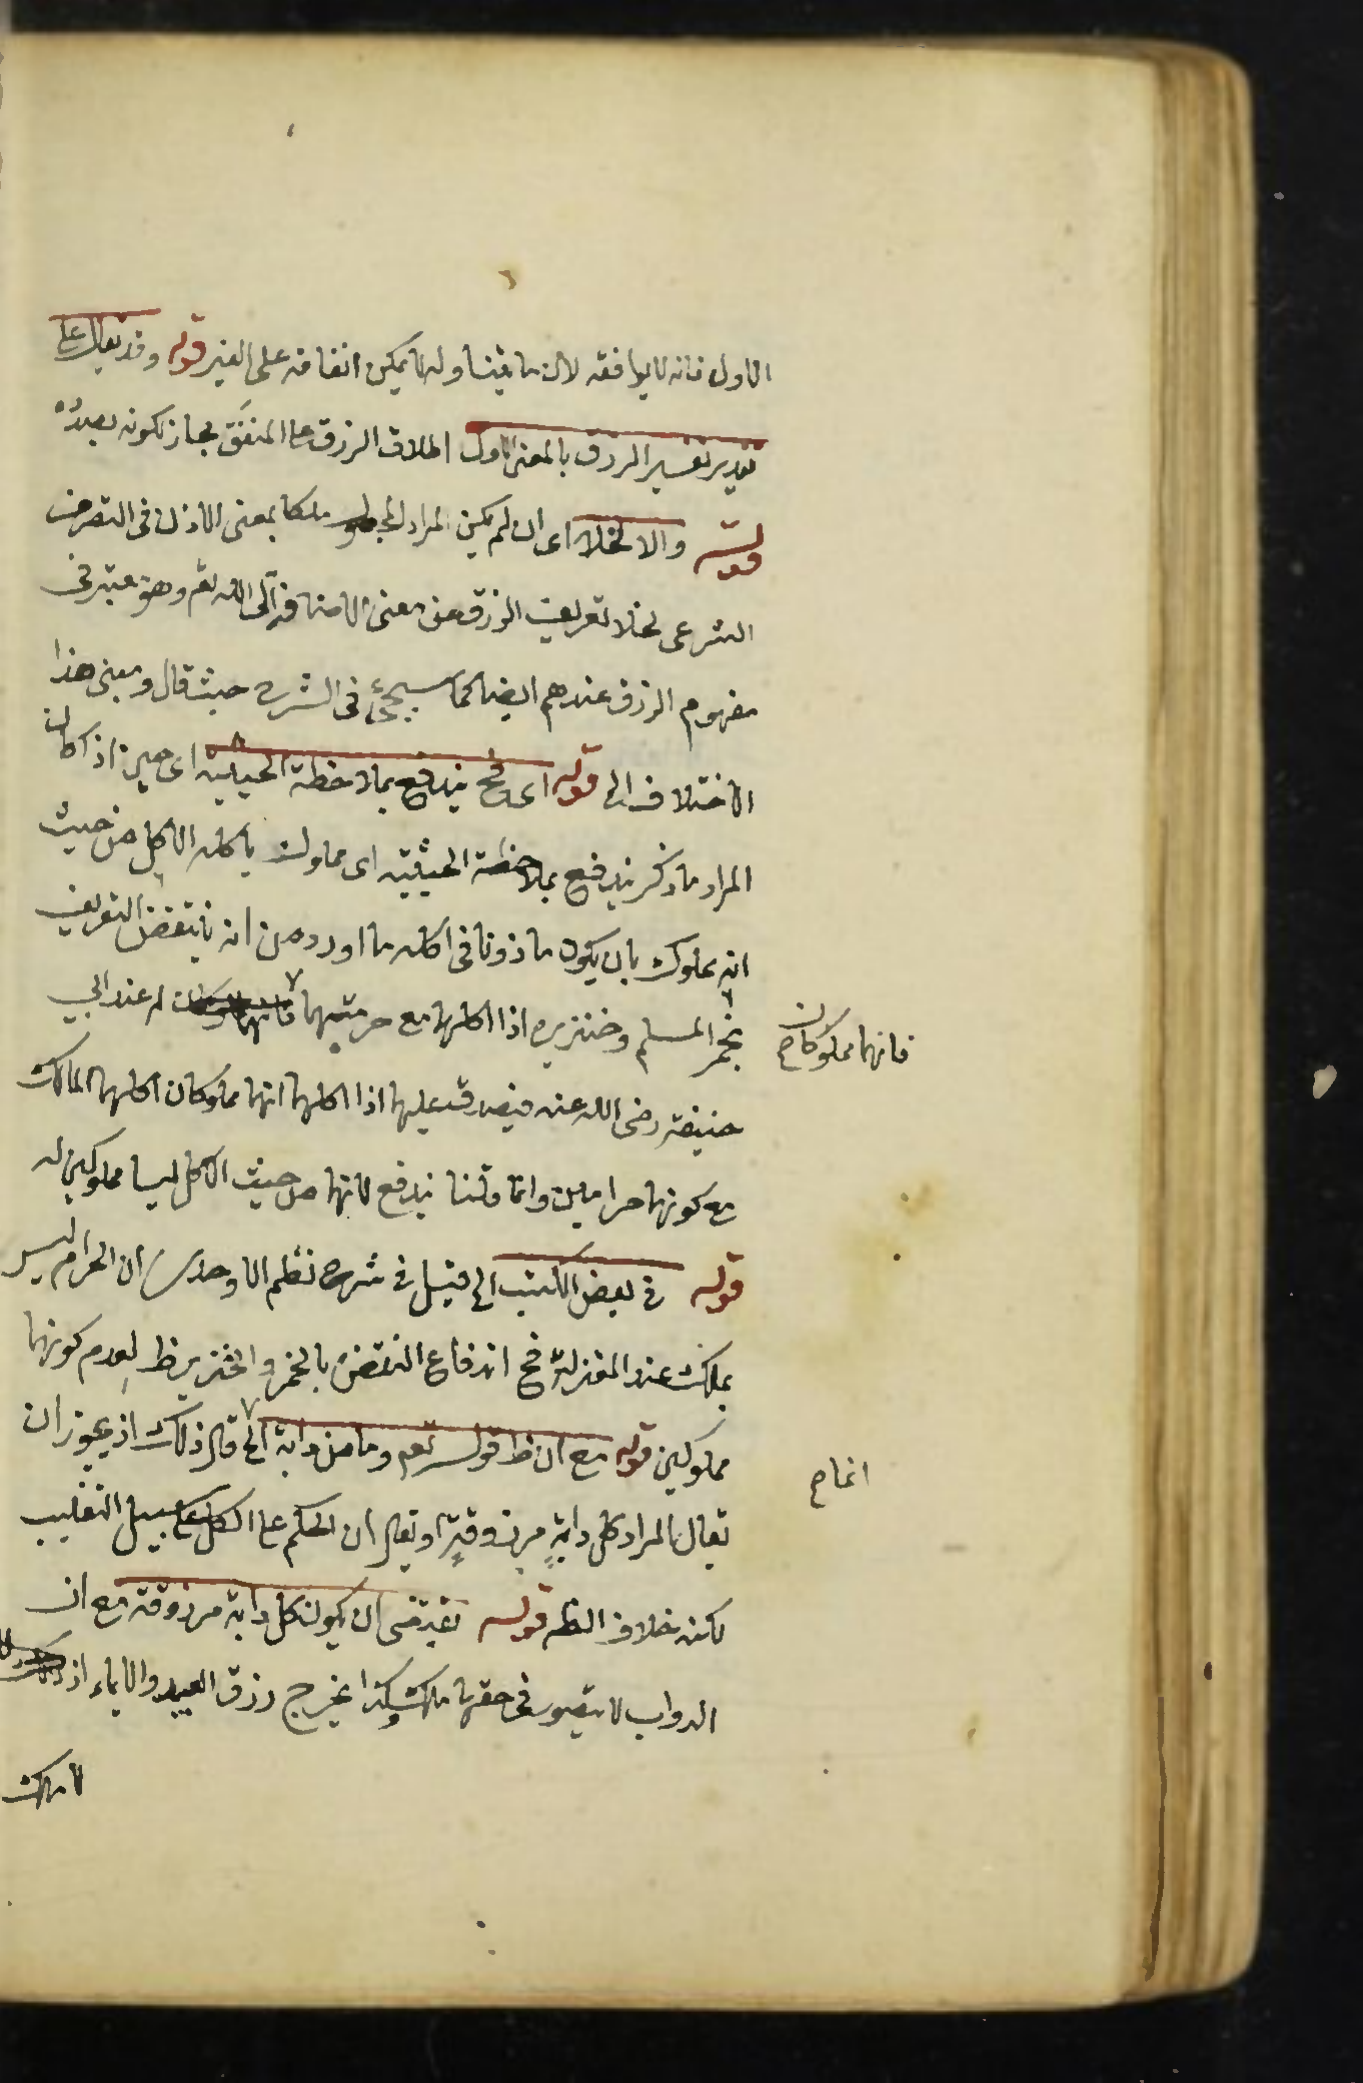 الاول فانه لا يوافقه لان ما يتناوله لا يمكن انفاقه على الغير قوله وقد يقال على
تقدير تفسير الرزق بالمعنى الاول اطلاق الرزق على المنفق مجاز لكونه بصدده
قوله والا لخلا اى ان لم يكن المراد المجعول ملكا بمعنى الاذن فى التصرف
الشرعى لخلا تعريف الرزق عن معنى الاضافة الى الله تعم وهو معتبر فى
مفهوم الرزق عندهم ايضا كما سيجئ فى الشرح حيث قال ومبنى هذا
الاختلاف الخ قوله اى فح يندفع بملاحظة الحيثية اى حين اذ كان
المراد ما ذكر يندفع بملاحظة الحيثية اى مملوك ياكله الآكل من حيث
انه مملوك بان يكون ماذونا فى اكله ما اورده من انه ينتقض التعريف
بخمر المسلم وخنزيره اذا اكلهما مع حرمتهما له عند ابى
فانهما مملوكان صح
حنيفة رضى الله عنه فيصدق عليهما اذا اكلهما انهما مملوكان اكلهما المالك
مع كونهما حرامين وانما قلنا يندفع لانهما من حيث الاكل ليسا مملوكين له
قوله فى بعض الكتب الخ قيل فى شرح نظم الاوحدى ان الحرام ليس
بملك عند المعتزلة فح اندفاع النقض بالخمر والخنزير ظ لعدم كونهما
مملوكين قوله مع ان ظ قوله تعم وما من دابة الخ قال ذلك اذ يجوز ان
انما صح
يقال المراد كل دابة مرزوقة او يقال ان الحكم على الكل على سبيل التغليب
لكنه خلاف الظ قوله يقتضى ان يكون كل دابة مرزوقة مع ان
الدواب لا يتصور فى حقها ملك وكذا يخرج رزق العبيد والاماء اذ
لا ملك